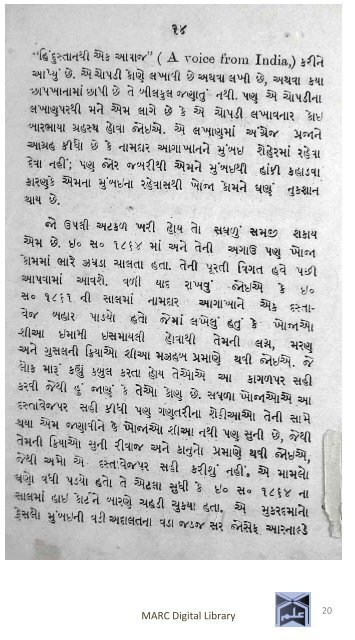 ૧૪
"હિંદુસ્તાનથી એક આવાજ" ( A voice from India,) કરીને
આપ્યું છે. એ ચોપડી કોણે લખાવી છે અથવા લખી છે, અથવા કયા
છાપખાનામાં છાપી છે તે બીલકુલ જણાતું નથી. પણ એ ચોપડીના
લખાણપરથી મને એમ લાગે છે કે એ ચોપડી લખાવનાર કોઇ
બારભાયા ગ્રહસ્થ હોવા જોઇએ. એ લખાણમાં અંગ્રેજ પ્રજાને
આગ્રહ કીધો છે કે નામદાર આગાખાનને મુંબઇ શેહેરમાં રહેવા
દેવા નહીં; પણ જોર જબરીથી એમને મુંબઇથી હાંકી કહાડવા
કારણકે એમના મુંબઇના રહેવાસથી ખોજા કોમને ઘણું નુકશાન
થાય છે.
જો ઉપલી અટકળ ખરી હોય તો સઘળું સમજી શકાય
એમ છે. ઇ૦ સ૦ ૧૮૬૪ માં અને તેની અગાઉ પણ ખોજા
કોમમાં ભારે ઝઘડા ચાલતા હતા. તેની પૂરતી વિગત હવે પછી
આપવામાં આવશે. વળી યાદ રાખવું જોઇએ કે ઇ૦
સ૦ ૧૮૬૧ ની સાલમાં નામદાર આગાખાને એક દસ્તા-
વેજ બહાર પાડયો હતો જેમાં લખેલું હતું કે ખોજાઓ
શીઆ ઇમામી ઇસમાયલી હોવાથી તેમની લગ્ન, મરણ
અને ગુસલની ક્રિયાઓ શીઆ મઝહબ પ્રમાણે થવી જોઇએ. જે
લોક મારૂં કહ્યું કબુલ કરતા હોય તેઓએ આ કાગળપર સહી
કરવી જેથી હું જાણું કે તેઓ કોણ છે. સઘળા ખોજાઓએ આ
દસ્તાવેજપર સહી કીધી પણ ગણત્રીના શેઠીઆઓ તેની સામે
થયા એમ જણાવીને કે ખોજાઓ શીઆ નથી પણ સુની છે, જેથી
તેમની ક્રિયાઓ સુની રીવાજ અને કાનુનો પ્રમાણે થવી જોઇએ,
જેથી અમો એ દસ્તાવેજપર સહી કરીશું નહીં. એ મામલો
ઘણો વધી પડયો હતો તે એટલા સુધી કે ઇ૦ સ૦ ૧૮૬૪ ના
સાલમાં હાઇ કોર્ટને બારણે ચહડી ચુક્યા હતા. એ મુકરદમાનો
ફેસલો મુંબઇની વડી અદાલતના વડા જડજ સર જોસેફ આરનોલ્ડે
MARC Digital Library
علم
20